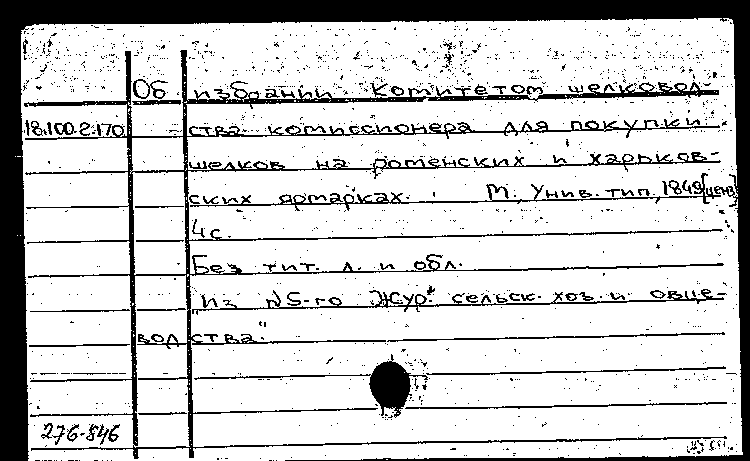 Об избрании Комитетом шелковод-
18.100.2.170 ства комиссионера для покупки
шелков на роменских и харьков-
ских ярмарках. М., Унив. тип., 1849 [ценз]
4 с.
Без тит. л. и обл.
"Из №5-го Жур. сельск. хоз. и овце-
водства."
276-846